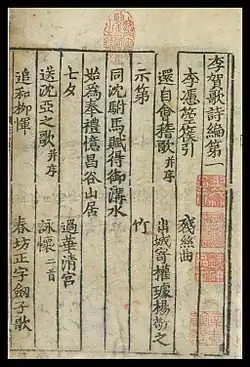 李賀歌詩編第一
李憑箜篌引
殘絲曲
還自會稽歌 并序
出城寄權璩楊敬之
示弟
竹
同沈駙馬賦得御溝水
始為奉禮憶昌谷山居
七夕
過華清宮
送沈亞之歌 并序
詠懷 二首
追和柳惲
春坊正字劔子歌